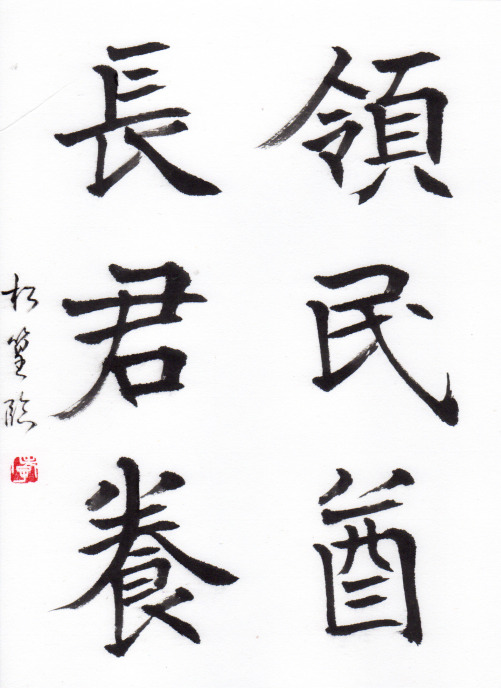 領民酋
長君養
松篁臨